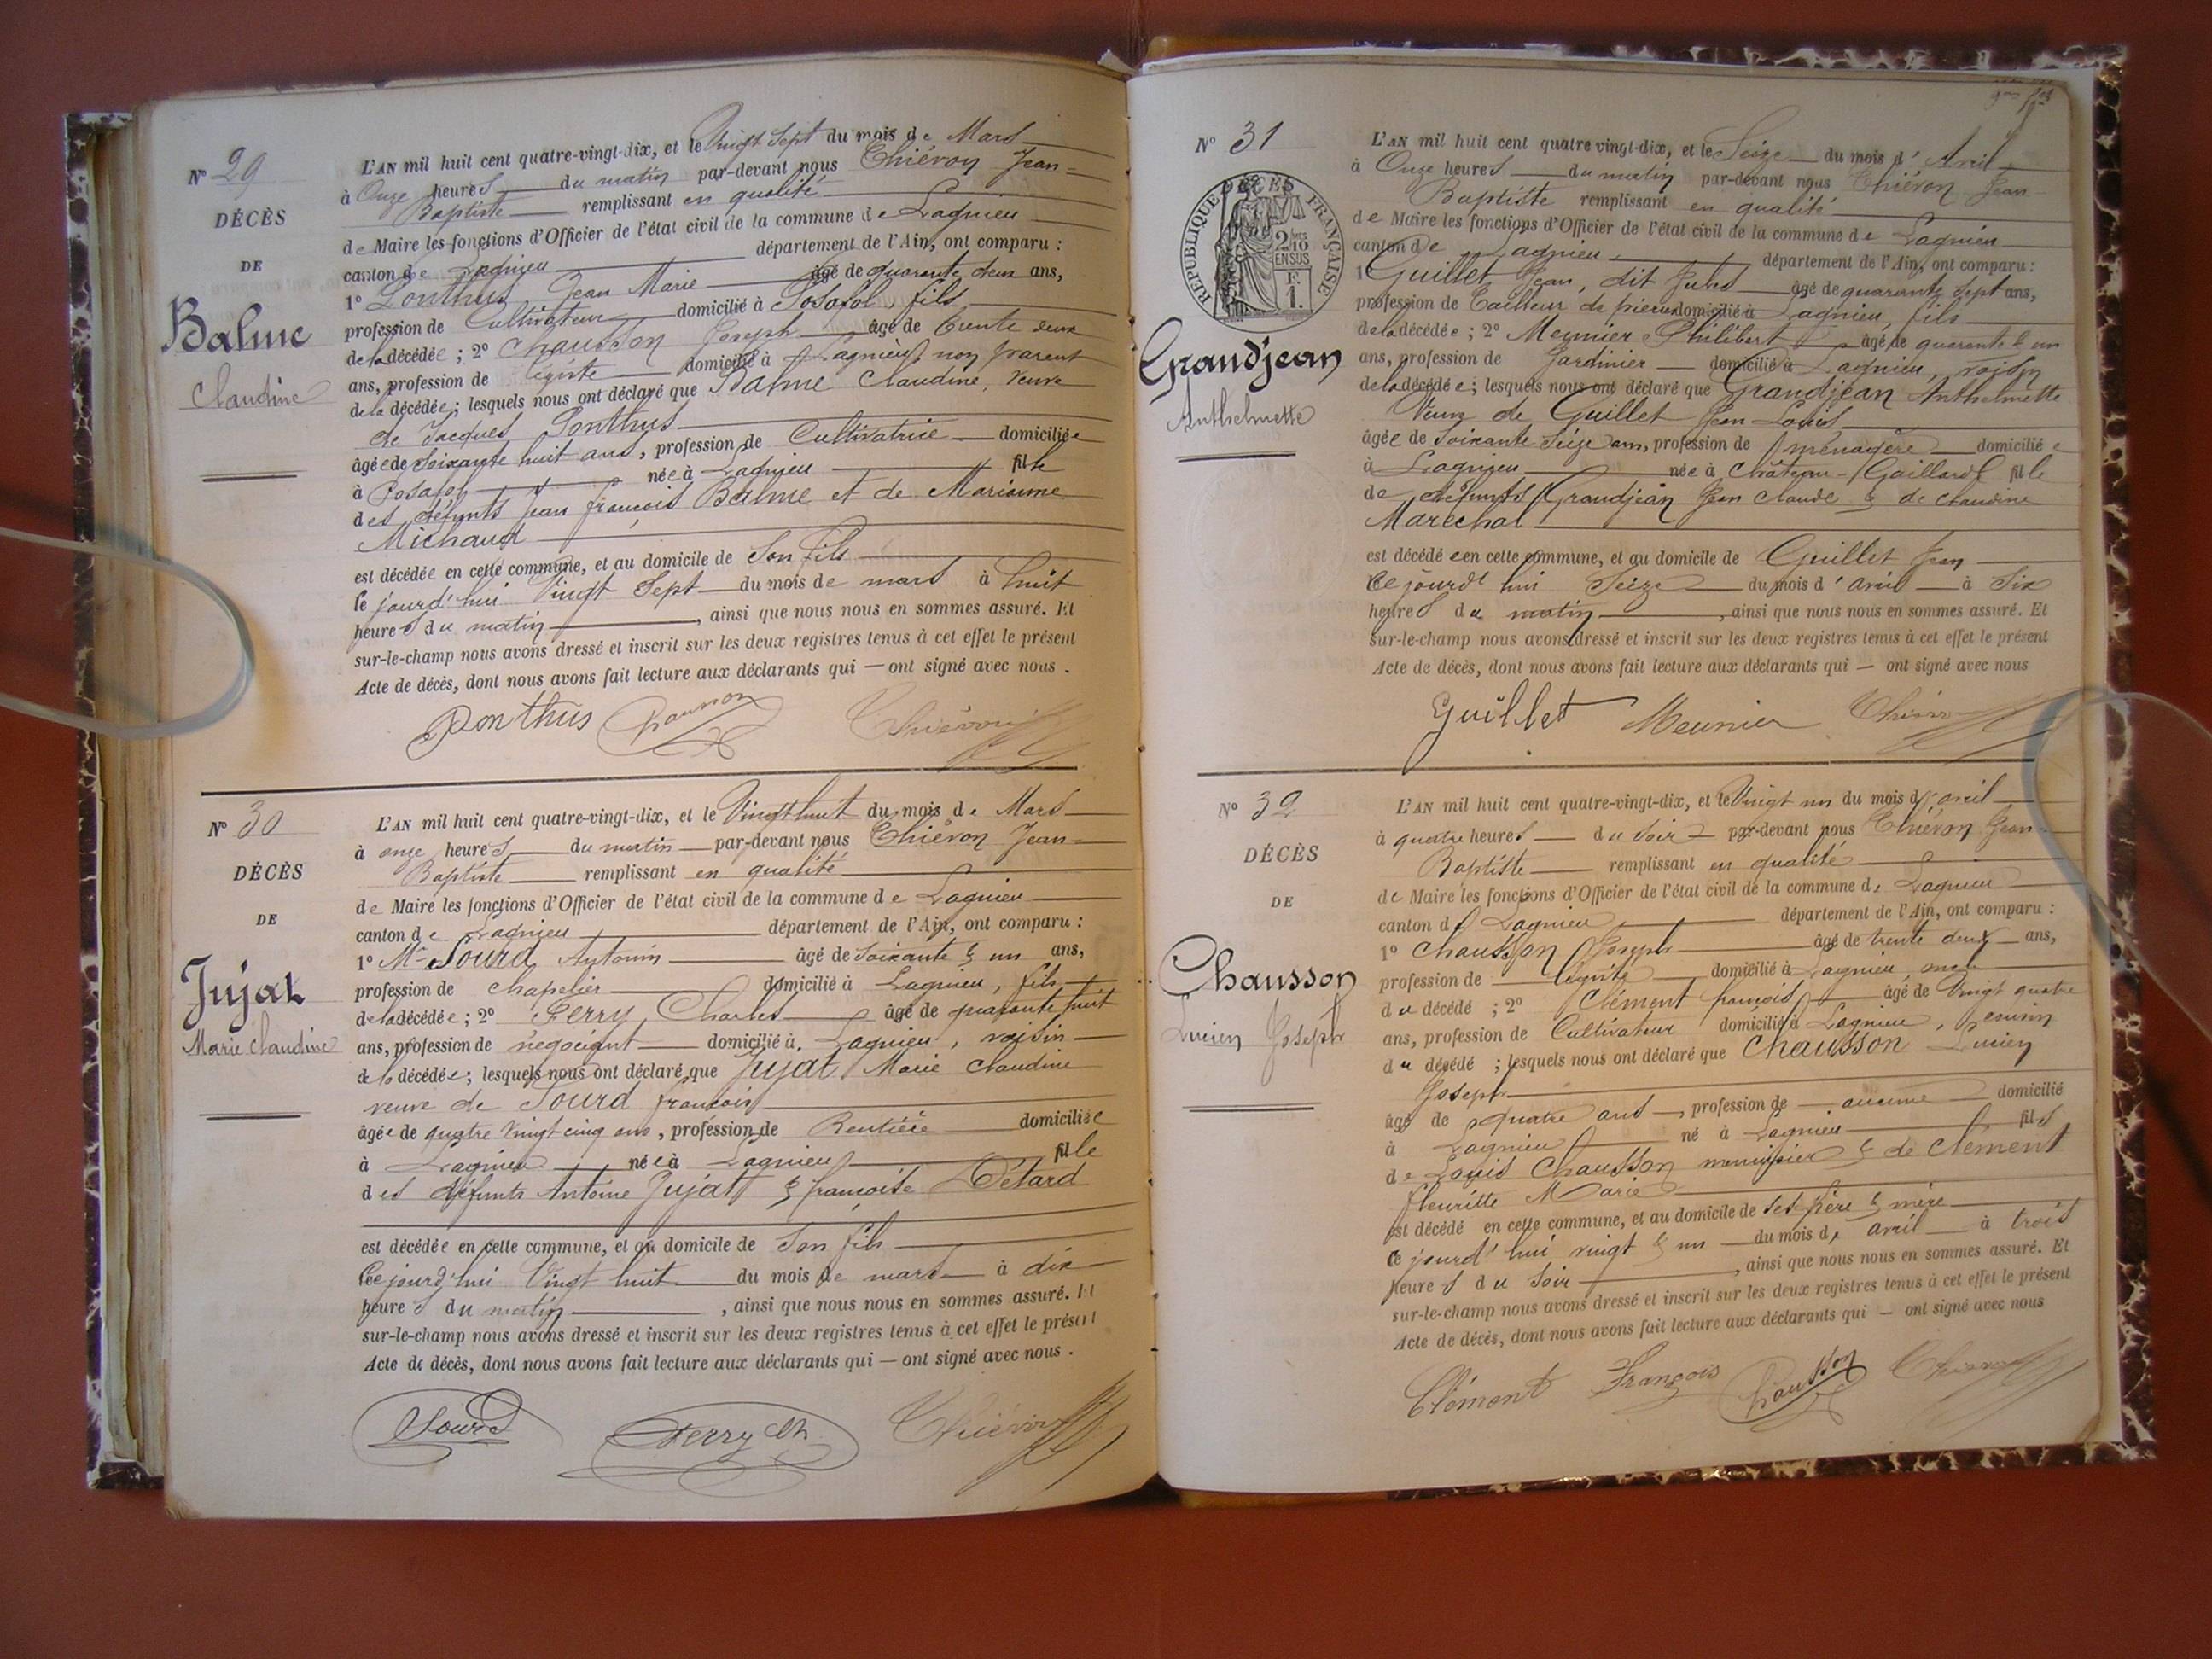 N° 29
DÉCÈS
DE
Balme
Claudine
L'AN mil huit cent quatre-vingt-dix, et le Vingt Sept du mois de Mars
à Onze heures du matin par-devant nous Thiévon Jean-
Baptiste remplissant en qualité
de Maire les fonctions d'Officier de l'état civil de la commune de Lagnieu
canton de Lagnieu département de l'Ain, ont comparu :
1° Ponthus Jean Marie âgé de quarante deux ans,
profession de Cultivateur domicilié à Posafol, fils
de la décédée ; 2° Chausson Joseph âgé de trente deux
ans, profession de légiste domicilié à Lagnieu, non parent
de la décédée ; lesquels nous ont déclaré que Balme Claudine, Veuve
de Jacques Ponthus
âgée de soixante huit ans, profession de Cultivatrice domiciliée
à Posafol née à Lagnieu fille
des défunts Jean françois Balme et de Marianne
Michaud
est décédée en cette commune, et au domicile de Son fils
le jourd'hui Vingt Sept du mois de mars à huit
heures du matin, ainsi que nous nous en sommes assuré. Et
sur-le-champ nous avons dressé et inscrit sur les deux registres tenus à cet effet le présent
Acte de décès, dont nous avons fait lecture aux déclarants qui — ont signé avec nous.
Ponthus Chausson Thiévon
N° 30
DÉCÈS
DE
Jujat
Marie Claudine
L'AN mil huit cent quatre-vingt-dix, et le Vingt huit du mois de Mars
à onze heures du matin par-devant nous Thiévon Jean-
Baptiste remplissant en qualité
de Maire les fonctions d'Officier de l'état civil de la commune de Lagnieu
canton de Lagnieu département de l'Ain, ont comparu :
1° Mr Sourd Antonin âgé de Soixante & un ans,
profession de chapelier domicilié à Lagnieu, fils
de la décédée ; 2° Ferry Charles âgé de quarante huit
ans, profession de négociant domicilié à Lagnieu, voisin
de la décédée ; lesquels nous ont déclaré que Jujat Marie Claudine
veuve de Sourd françois
âgée de quatre vingt cinq ans, profession de Rentière domiciliée
à Lagnieu née à Lagnieu fille
des défunts Antoine Jujat & françoise Détard
est décédée en cette commune, et au domicile de Son fils
Ce jourd'hui Vingt huit du mois de mars à dix
heures du matin, ainsi que nous nous en sommes assuré. Et
sur-le-champ nous avons dressé et inscrit sur les deux registres tenus à cet effet le présent
Acte de décès, dont nous avons fait lecture aux déclarants qui — ont signé avec nous.
Sourd Ferry Ch Thiévon
N° 31
DÉCÈS
RÉPUBLIQUE FRANÇAISE
2/10 EN SUS
F. 1.
Grandjean
Anthelmette
L'AN mil huit cent quatre vingt-dix, et le Seize du mois d'Avril
à Onze heures du matin par-devant nous Thiévon Jean-
Baptiste remplissant en qualité
de Maire les fonctions d'Officier de l'état civil de la commune de Lagnieu
canton de Lagnieu département de l'Ain, ont comparu :
1° Guillet Jean, dit Jules âgé de quarante sept ans,
profession de Tailleur de pierres domicilié à Lagnieu, fils
de la décédée ; 2° Meunier Philibert âgé de quarante & un
ans, profession de Jardinier domicilié à Lagnieu, voisin
de la décédée ; lesquels nous ont déclaré que Grandjean Anthelmette
Veuve de Guillet Jean Louis
âgée de Soixante Seize ans, profession de ménagère domiciliée
à Lagnieu née à Château-Gaillard fille
de défunts Grandjean Jean Claude & de Claudine
Marechal
est décédée en cette commune, et au domicile de Guillet Jean
Ce jourd'hui Seize du mois d'avril à Six
heures du matin, ainsi que nous nous en sommes assuré. Et
sur-le-champ nous avons dressé et inscrit sur les deux registres tenus à cet effet le présent
Acte de décès, dont nous avons fait lecture aux déclarants qui — ont signé avec nous
Guillet Meunier Thiévon
N° 32
DÉCÈS
DE
Chausson
Lucien Joseph
L'AN mil huit cent quatre-vingt-dix, et le Vingt un du mois d'avril
à quatre heures du Soir par-devant nous Thiévon Jean-
Baptiste remplissant en qualité
de Maire les fonctions d'Officier de l'état civil de la commune de Lagnieu
canton de Lagnieu département de l'Ain, ont comparu :
1° Chausson Joseph âgé de trente deux ans,
profession de légiste domicilié à Lagnieu, oncle
du décédé ; 2° Clément françois âgé de Vingt quatre
ans, profession de Cultivateur domicilié à Lagnieu, cousin
du décédé ; lesquels nous ont déclaré que Chausson Lucien
Joseph
âgé de quatre ans, profession de aucune domicilié
à Lagnieu né à Lagnieu fils
de Louis Chausson menuisier & de Clément
fleuritte Marie
est décédé en cette commune, et au domicile de ses père & mère
Ce jourd'hui vingt & un du mois de avril à trois
heures du Soir, ainsi que nous nous en sommes assuré. Et
sur-le-champ nous avons dressé et inscrit sur les deux registres tenus à cet effet le présent
Acte de décès, dont nous avons fait lecture aux déclarants qui — ont signé avec nous
Clément François Chausson Thiévon